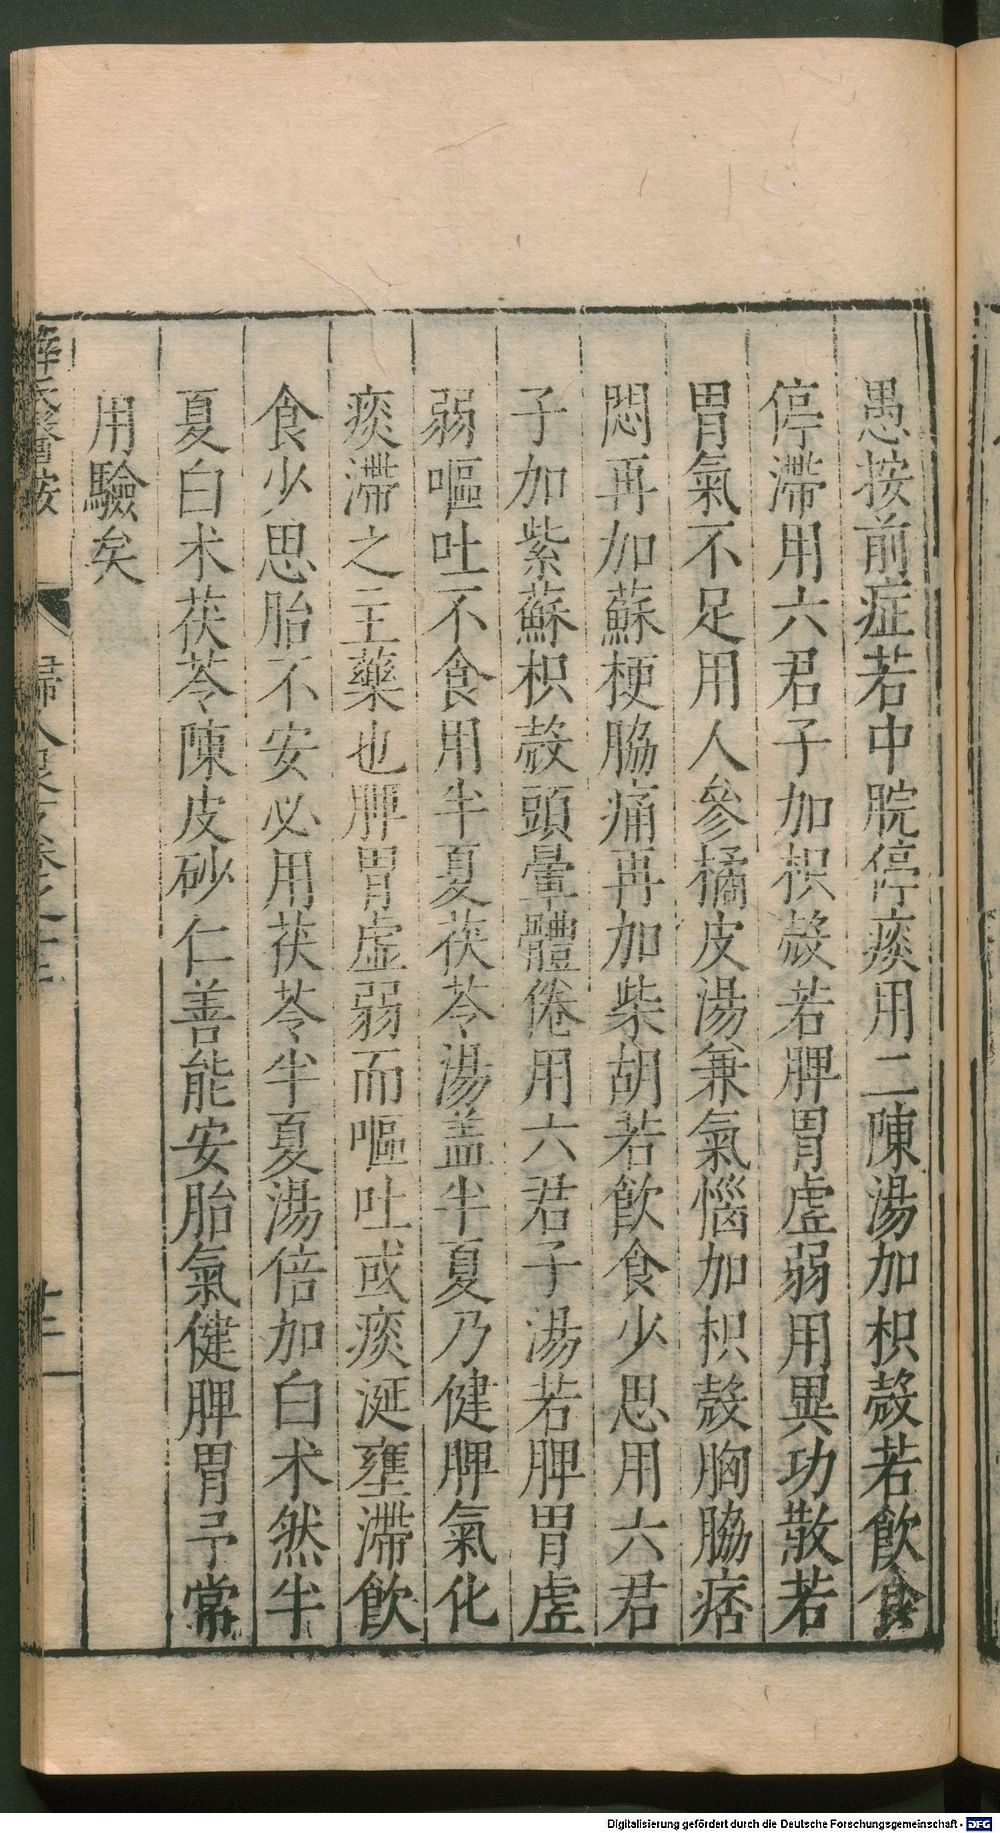 愚按前症若中脘停痰用二陳湯加枳殼若飲食
停滯用六君子加枳殼若脾胃虛弱用異功散若
胃氣不足用人參橘皮湯兼氣惱加枳殼胸脇痞
悶再加蘇梗脇痛再加柴胡若飲食少思用六君
子加紫蘇枳殼頭暈體倦用六君子湯若脾胃虛
弱嘔吐不食用半夏茯苓湯盖半夏乃健脾氣化
痰滯之主藥也脾胃虛弱而嘔吐或痰涎壅滯飲
食少思胎不安必用茯苓半夏湯倍加白术然半
夏白术茯苓陳皮砂仁善能安胎氣健脾胃予常
用驗矣
Digitalisierung gefördert durch die Deutsche Forschungsgemeinschaft - DFG